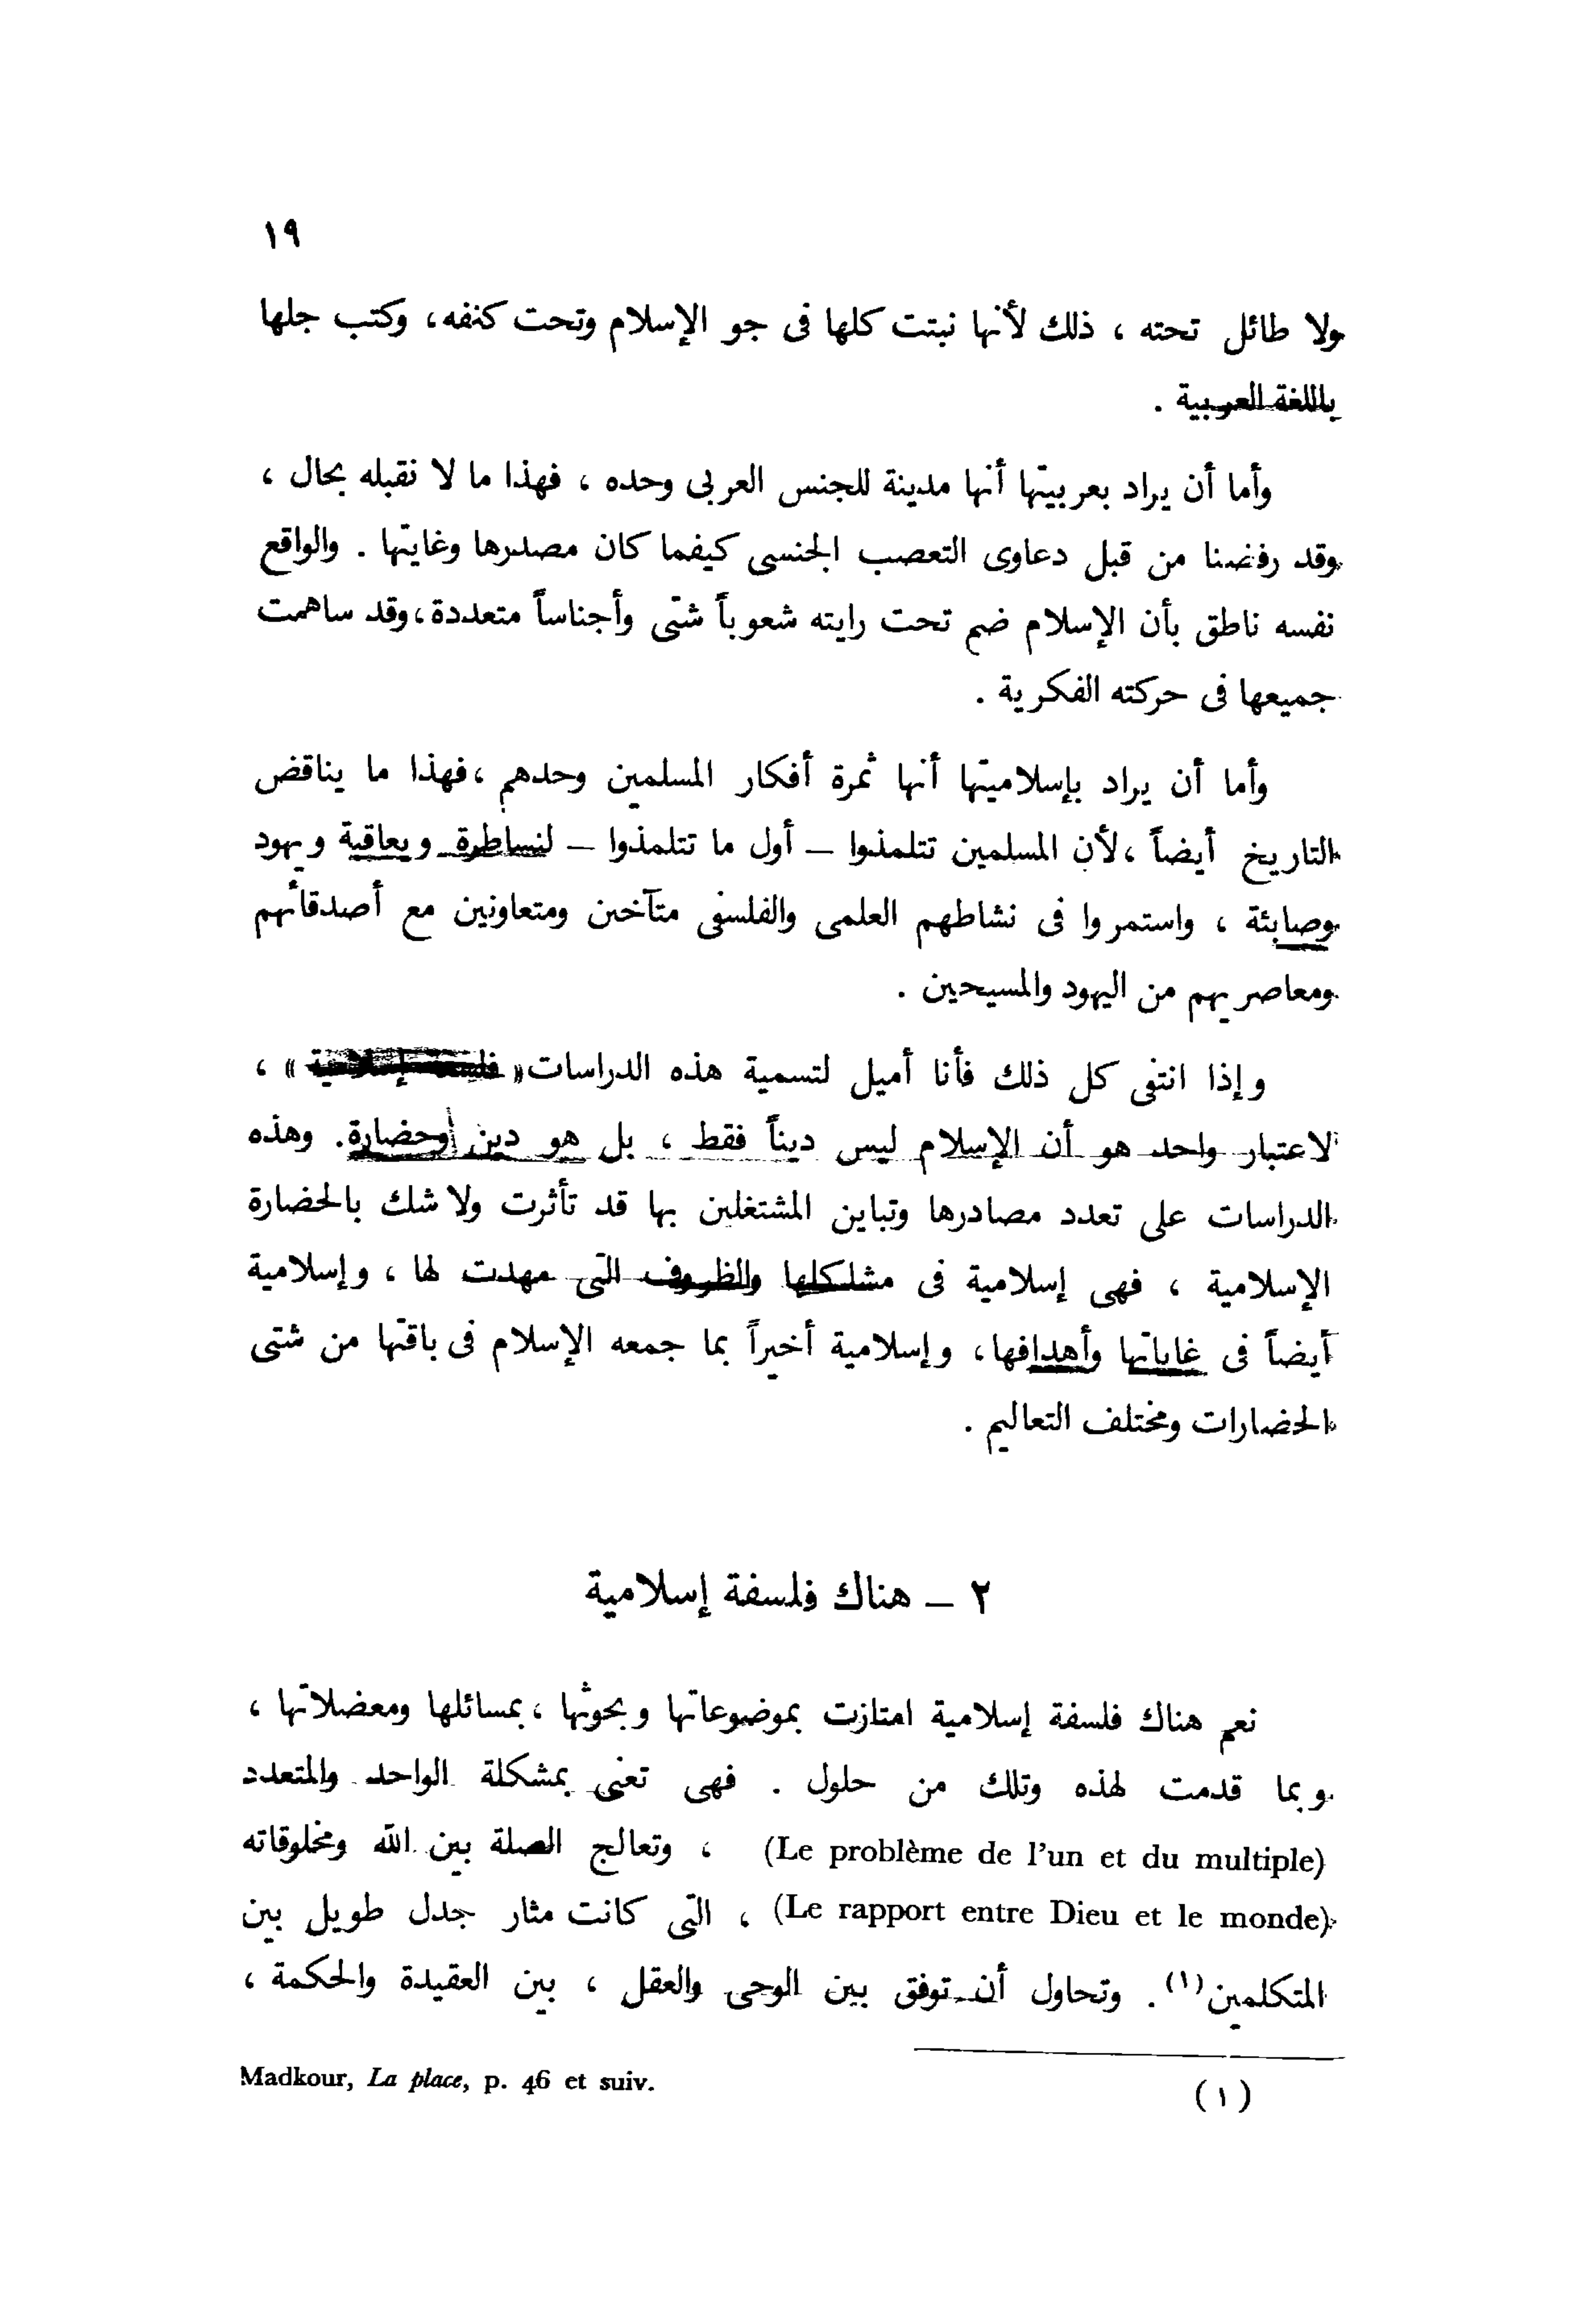 ١٩
ولا طائل تحته ، ذلك لأنها نبتت كلها فى جو الإسلام وتحت كنفه، وكتب جلها
باللغة العربية .
وأما أن يراد بعربيتها أنها مدينة للجنس العربى وحده ، فهذا ما لا نقبله بحال ،
وقد رفضنا من قبل دعاوى التعصب الجنسى كيفما كان مصدرها وغايتها . والواقع
نفسه ناطق بأن الإسلام ضم تحت رايته شعوباً شتى وأجناساً متعددة، وقد ساهمت
جميعها فى حركته الفكرية .
وأما أن يراد بإسلاميتها أنها ثمرة أفكار المسلمين وحدهم ، فهذا ما يناقض
التاريخ أيضاً ، لأن المسلمين تتلمذوا – أول ما تتلمذوا – لنساطرة ويعاقبة ويهود
وصابئة ، واستمروا فى نشاطهم العلمى والفلسفى متآخين ومتعاونين مع أصدقائهم
ومعاصريهم من اليهود والمسيحين .
وإذا انتفى كل ذلك فأنا أميل لتسمية هذه الدراسات « فلسفة إسلامية » ،
لاعتبار واحد هو أن الإسلام ليس ديناً فقط ، بل هو دين وحضارة. وهذه
الدراسات على تعدد مصادرها وتباين المشتغلين بها قد تأثرت ولا شك بالحضارة
الإسلامية ، فهى إسلامية فى مشاكلها والظروف التى مهدت لها ، وإسلامية
أيضاً فى غاياتها وأهدافها، وإسلامية أخيراً بما جمعه الإسلام فى باقتها من شتى
الحضارات ومختلف التعاليم .
٢ – هناك فلسفة إسلامية
نعم هناك فلسفة إسلامية امتازت بموضوعاتها وبحوثها ، بمسائلها ومعضلاتها ،
وبما قدمت لهذه وتلك من حلول . فهى تعنى بمشكلة الواحد والمتعدد
(Le problème de l'un et du multiple) ، وتعالج الصلة بين الله ومخلوقاته
(Le rapport entre Dieu et le monde) ، التى كانت مثار جدل طويل بين
المتكلمين(١). وتحاول أن توفق بين الوحى والعقل ، بين العقيدة والحكمة ،
(١) Madkour, La place, p. 46 et suiv.